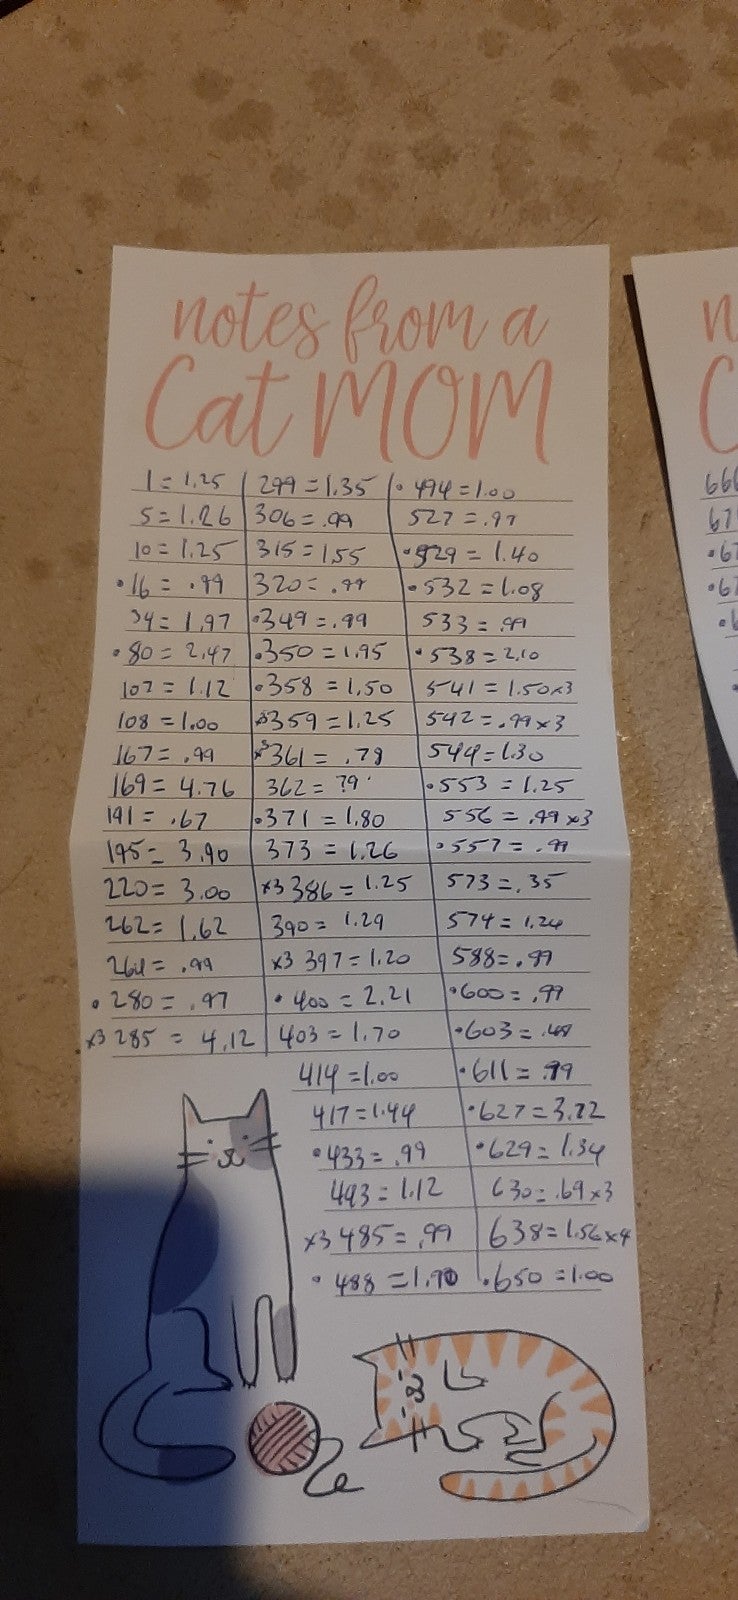 notes from a
Cat MOM
1 = 1.25
5 = 1.26
10 = 1.25
• 16 = .99
34 = 1.97
• 80 = 2.47
107 = 1.12
108 = 1.00
167 = .99
169 = 4.76
191 = .67
195 = 3.90
220 = 3.00
262 = 1.62
264 = .99
• 280 = .97
x3 285 = 4.12
299 = 1.35
306 = .99
315 = 1.55
320 = .99
• 349 = .99
• 350 = 1.95
• 358 = 1.50
x3 359 = 1.25
x3 361 = .78
362 = .79
• 371 = 1.80
373 = 1.26
x3 386 = 1.25
390 = 1.29
x3 397 = 1.20
• 400 = 2.21
403 = 1.70
414 = 1.00
417 = 1.44
• 433 = .99
443 = 1.12
x3 485 = .99
• 488 =
• 494 = 1.00
527 = .97
• 529 = 1.40
• 532 = 1.08
533 = .99
• 538 = 2.10
541 = 1.50 x3
542 = .99 x3
544 = 1.30
• 553 = 1.25
556 = .99 x3
• 557 = .99
573 = .35
574 = 1.24
588 = .99
• 600 = .99
• 603 =
• 611 = .99
• 627 = 3.72
• 629 = 1.34
630 = .69 x3
638 = 1.56 x4
• 650 = 1.00